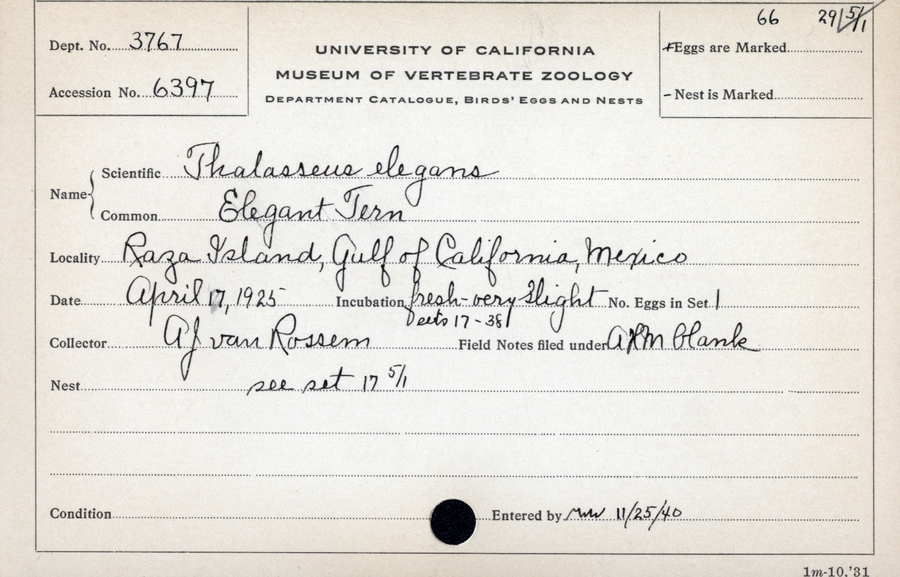 66 29/5/1
Dept. No. 3767
UNIVERSITY OF CALIFORNIA
+Eggs are Marked
MUSEUM OF VERTEBRATE ZOOLOGY
Accession No. 6397
DEPARTMENT CATALOGUE, BIRDS' EGGS AND NESTS
- Nest is Marked
Name Scientific Thalasseus elegans
Common Elegant Tern
Locality Raza Island, Gulf of California, Mexico
Date April 17, 1925 Incubation fresh-very slight No. Eggs in Set 1
sets 17-38
Collector AJ van Rossem Field Notes filed under blank
Nest see set 17 5/1
Condition Entered by 11/25/40
1m-10,'31